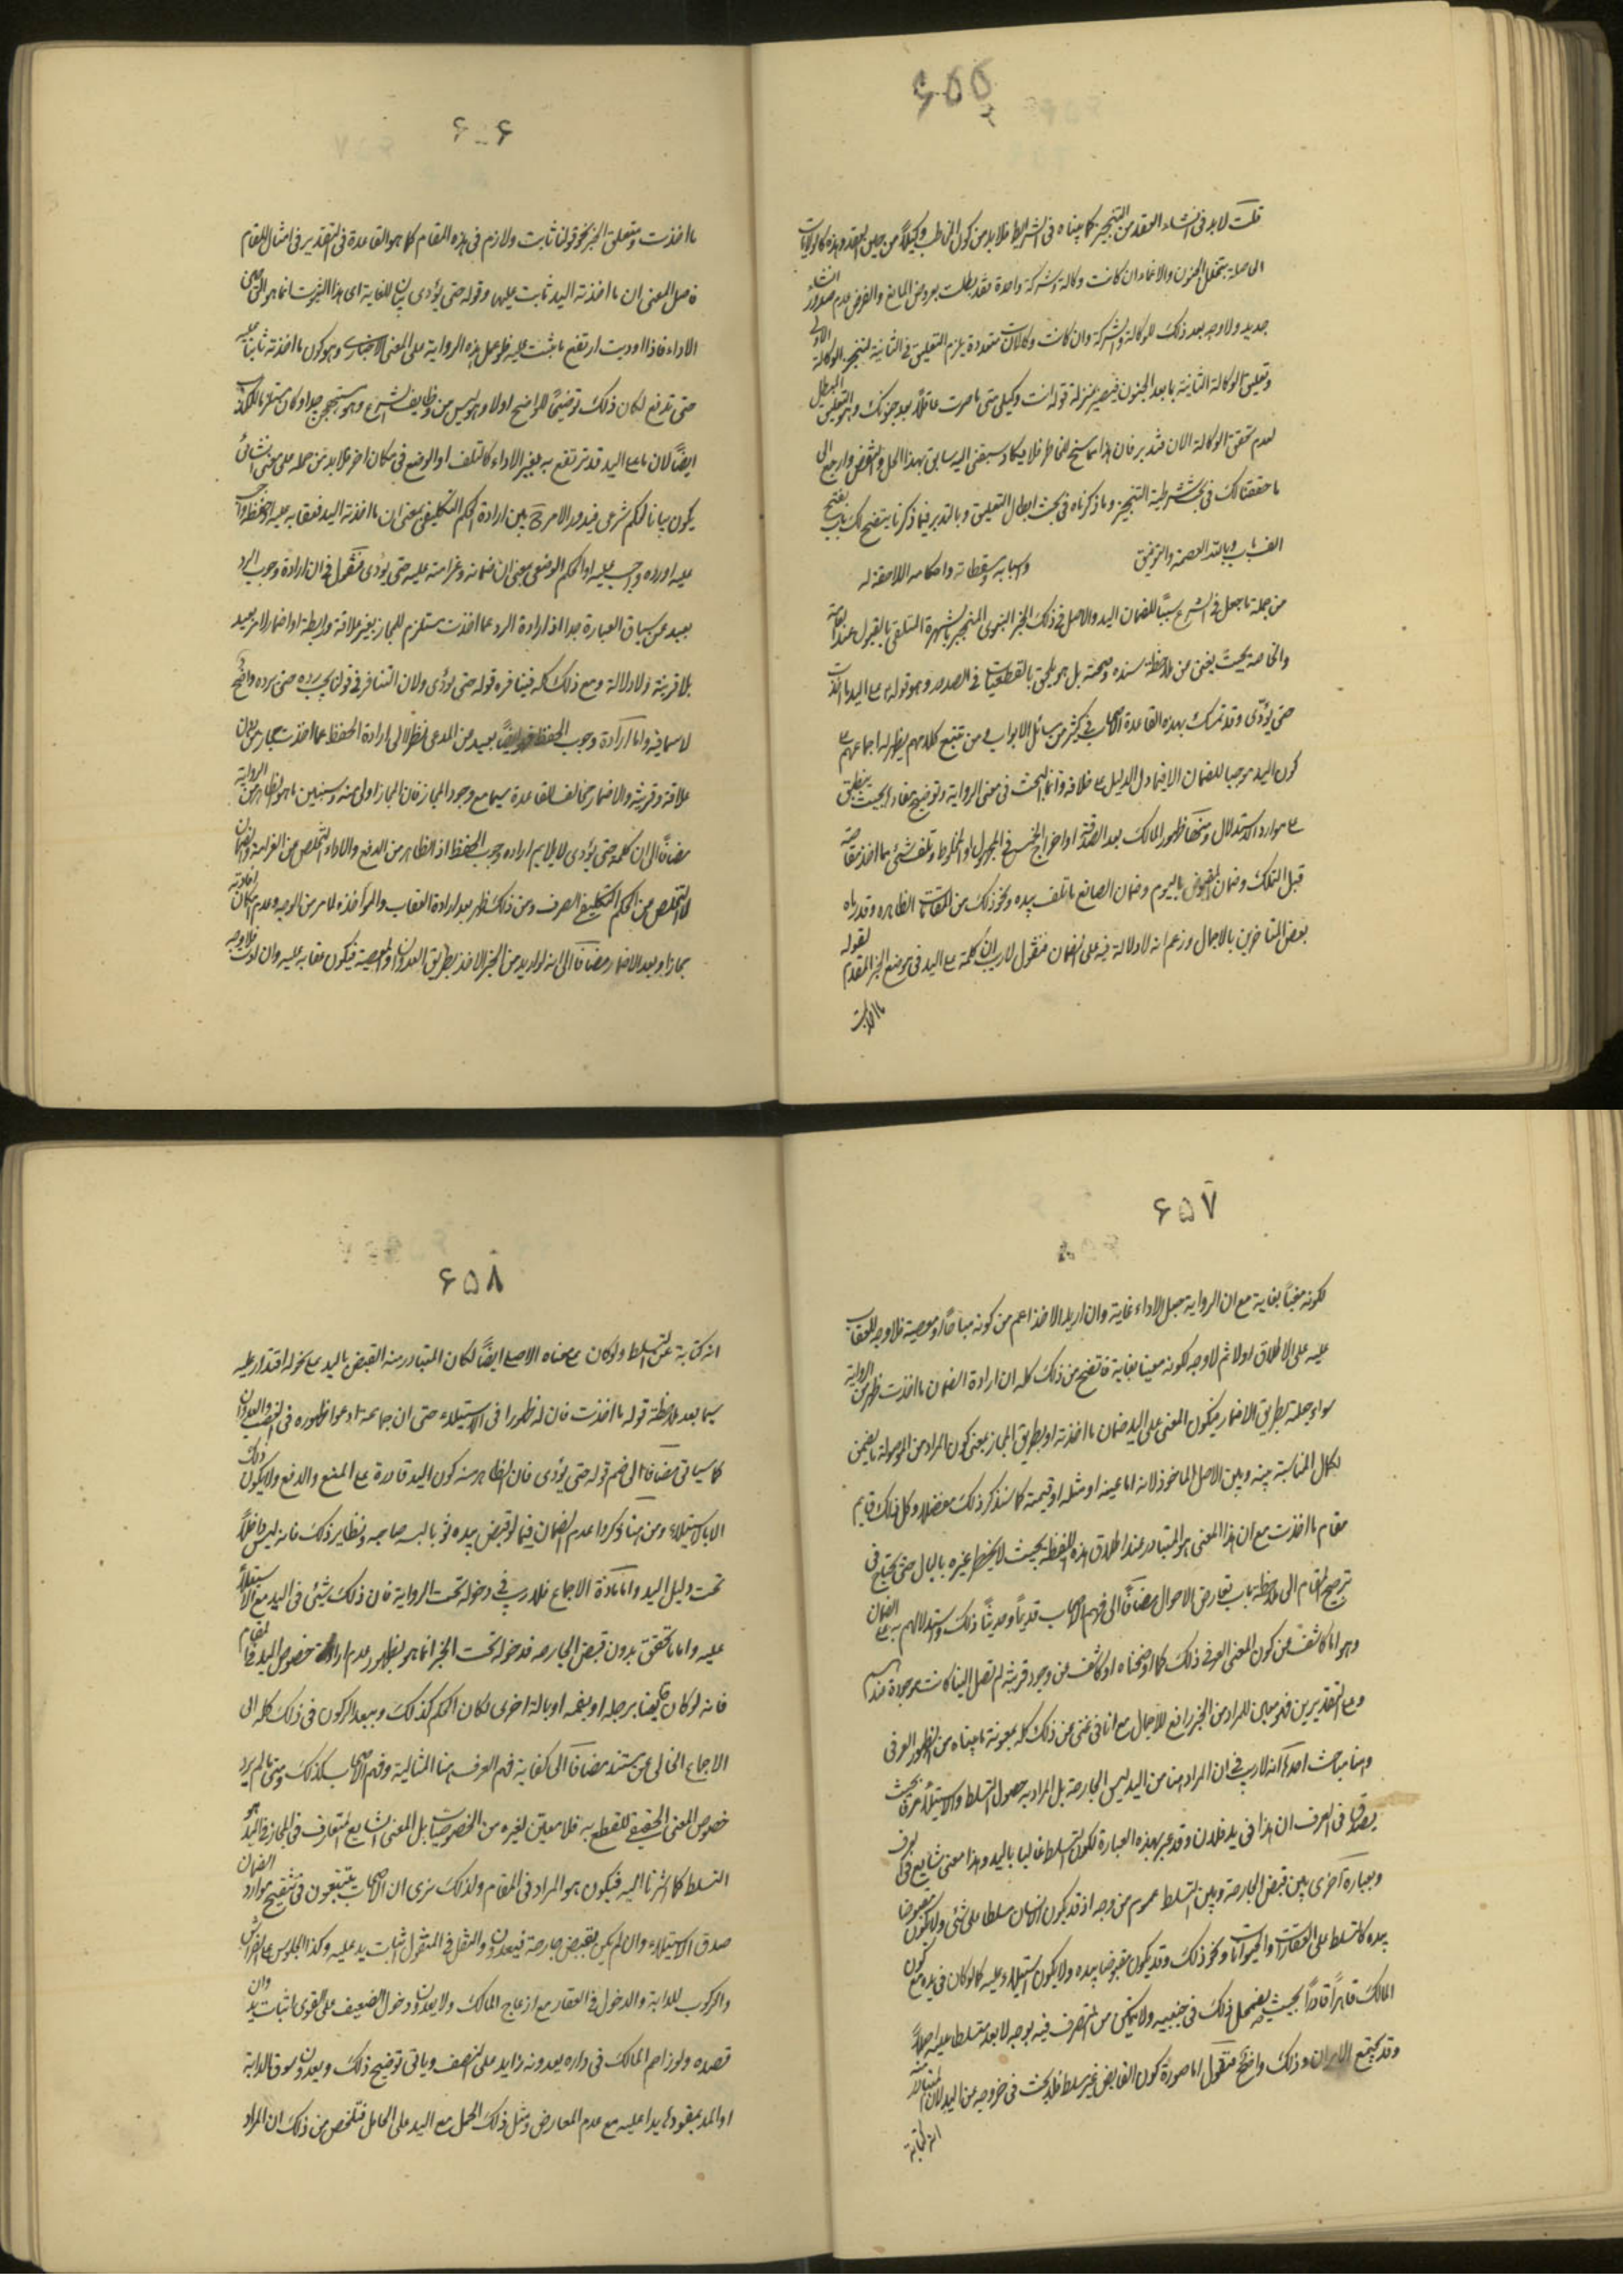 ۶۵۵
قلت لابد فى انشاء العقد من التنجيز كما بيناه فى الشرايط فلا بد من كون المخاطب وكيلاً من حين العقد وهذه كالولايات
الحاصلة بتخلل الجنون والاغماء ان كانت وكالة وشركة واحدة فقد بطلت بعروض المانع والفرض عدم صدور انشاء
جديد ولا وجه بعد ذلك للوكالة والشركة وان كانت وكالات متعددة يلزم التعليق فى الثانية لتنجيز الوكالة الاولى
وتعليق الوكالة الثانية بما بعد الجنون فيصير بمنزلة قوله انت وكيلى متى ما صرت عاقلاً بعد جنونك وهو التعليق المبطل
لعدم تحقق الوكالة الان فتدبر فان هذا مما سنح للخاطر فلا يكاد سبقنى اليه سابق بهذا الحل والنقض وارجع الى
ما حققناه لك فى بحث شرطية التنجيز وما ذكرناه فى بحث ابطال التعليق وبالتدبر فيما ذكرنا يتضح لك باب يفتح
الف باب وبالله العصمة والتوفيق واسبابه ومسقطاته واحكامه اللاحقة له
من جملة ما جعل فى الشرع سبباً للضمان اليد والاصل فى ذلك الخبر النبوى المنجبر بالشهرة المتلقى بالقبول عند العامة
والخاصة بحيث يغنى عن ملاحظة سنده وصحته بل هو ملحق بالقطعيات فى الصدور وهو قوله ص على اليد ما اخذت
حتى يؤدّى وقد تمسك بهذه القاعدة الاصحاب فى كثير من مسائل الابواب ومن تتبع كلامهم يظهر له اجماعهم على
كون اليد موجبا للضمان الا فيما دل الدليل على خلافه وانما البحث فى معنى الرواية وتوضيح مفادها بحيث ينطبق
على موارد الاستدلال ومنها ظهور المالك بعد الصدقة او اخراج الخمس فى المجهول او المخلوط وتلف شئ مما اخذ مقاصة
قبل التملك وضمان المقبوض بالسوم وضمان الصانع ما تلف بيده ونحو ذلك من المقامات الظاهرة وقد رماه
بعض المتاخرين بالاجمال وزعم انه لا دلالة فيه على الضمان فنقول لا ريب ان كلمة على اليد فى موضع الخبر المقدم لقوله
ما اخذت
۶۵۶
ما اخذت ومتعلق الخبر نحو قولنا ثابت ولازم فى هذه المقام كما هو القاعدة فى التقدير فى امثال المقام
فاصل المعنى ان ما اخذته اليد ثابت عليها وقوله حتى يؤدى بيان للغاية اى هذا الثبوت انما هو الى حين
الاداء فاذا اوديت ارتفع ما ثبت عليه فلو حمل هذه الرواية على المعنى الاخبارى وهو كون ما اخذته ثابتاً عليه
حتى تدفع لكان ذلك توضيحاً للواضح اولا وهو ليس من وظايف الشرع وهو مستهجن جدا وكان مستلزما للكذب
ايضاً لان ما على اليد قد ترتفع به بغير الاداء كالتلف او الوضع فى مكان اخر فلا بد من حمله على معنى انشائى
يكون بيانا لحكم شرعى فيدور الامر ح بين ارادة الحكم التكليفى بمعنى ان ما اخذته اليد فعقابه عليه او حفظه واجب
عليه او رده واجب عليه او الحكم الوضعى بمعنى ان ضمانه وغرامته عليه حتى يؤدى فنقول فى ان ارادة وجوب الرد
بعيد عن سياق العبارة جدا اذ ارادة الرد مما اخذت مستلزم للمجاز بغير علاقة ورابطة او اضمار الامر بعيد
بلا قرينة ولا دلالة ومع ذلك كله فينافره قوله حتى يؤدى ولان التنافر فى قولنا يجب رده حتى يرده واضح
لا سماجة واما ارادة وجوب الحفظ فهو ايضاً بعيد عن المدعى بالنظر الى ارادة الحفظ مما اخذت مجاز من دون
علاقة وقرينة والاضمار مخالف للقاعدة سيما مع وجود المجاز فان المجاز اولى منه وسنبين ما هو الظاهر من الرواية
مضافاً الى ان كلمة حتى يؤدى لا يلايم ارادة وجوب الحفظ اذ الظاهر من الدفع والاداء التخلص من الغرامة والضمان
لا التخلص من الحكم التكليفى الصرف ومن ذلك ظهر بعد ارادة العقاب والمؤاخذة لما مر من الوجه وعدم امكان ارادته
مجازا وبعد الاضمار مضافاً الى انه لو اريد من الخبر الاخذ بطريق العدوان والمعصية فيكون عقابه عليه وان اديت فلا وجه
۶۵۷
لكونه مغيّاً بغاية مع ان الرواية جعل الاداء غاية وان اريد الاخذ اعم من كونه مباحاً او معصية فلا وجه للعقاب
عليه على الاطلاق اولا ثم لا وجه لكونه مغيا بغاية فاتضح من ذلك كله ان ارادة الضمان ما اخذت ظهر من الرواية
سواء جعلته بطريق الاضمار فيكون المعنى على اليد ضمان ما اخذته او بطريق المجاز بمعنى كون المراد من الموصولة ما يضمن
لكمال المناسبة بينه وبين الاصل الماخوذ لانه اما عينه او مثله او قيمته كما سنذكر ذلك مفصلا وكل ذلك قايم
مقام ما اخذت مع ان هذا المعنى هو المتبادر عند اطلاق هذه اللفظة بحيث لا يخطر غيره بالبال حتى يحتاج فى
ترجيح المقام الى ملاحظة باب تعارض الاحوال مضافاً الى فهم الاصحاب قديماً وحديثاً ذلك واستدلالهم به على الضمان
وهو اما كاشف عن كون المعنى العرفى ذلك كما اوضحناه او كاشف عن وجود قرينة لم تصل الينا كانت موجودة عندهم
وعلى التقديرين فهو مبين للمراد من الخبر رافع للاجمال مع انا فى غنى عن ذلك كله بمعونة ما بيناه من الظهور العرفى
وهنا مباحث احدها انه لا ريب فى ان المراد هنا من اليد ليس الجارحة بل المراد به حصول التسلط والاستيلاء عرفا بحيث
يصدق فى العرف ان هذا فى يد فلان وقد عبر بهذه العبارة لكون التسلط غالبا باليد وهذا معنى شايع فى العرف
وبعبارة اخرى بين قبض الجارحة وبين التسلط عموم من وجه اذ قد يكون الانسان مسلطا على شئ ولا يكون مقبوضا
بيده كالتسلط على العقارات والحيوانات ونحو ذلك وقد يكون مقبوضا بيده ولا يكون استيلاء عليه كما لو كان فى يده مع كون
المالك قاهراً قادراً بحيث يضمحل ذلك فى جنبيه ولا يتمكن من التصرف فيه بوجه لا يعد متسلطا عليه اصلاً
وقد يجتمع الامران وذلك واضح فنقول اما صورة كون القابض غير مسلط فلا بحث فى خروجه عن اليد لان المتبادر منه
انه كناية
۶۵۸
انه كناية عن التسلط ولو كان على معناه الاصلى ايضاً لكان المتبادر منه القبض باليد على نحو له اقتدار عليه
سيما بعد ملاحظة قوله ما اخذت فان له ظهورا فى الاستيلاء حتى ان جماعة ادعوا ظهوره فى الغصب والعدوان
كما سياتى مضافا الى ضم قوله حتى يؤدى فان الظاهر منه كون اليد قادرة على المنع والدفع ولا يكون ذلك
الا بالاستيلاء ومن هنا ذكروا عدم الضمان فيما لو قبض بيده ثوبا لبسه صاحبه ونظاير ذلك فانه ليس داخلاً
تحت دليل اليد واما مادة الاجماع فلا ريب فى دخوله تحت الرواية فان ذلك شئ فى اليد مع الاستيلاء
عليه واما ما تحقق بدون قبض الجارحة فدخوله تحت الخبر انما هو بظهور عدم ارادة خصوص اليد فى المقام
فانه لو كان قابضا برجله او بفمه او بالة اخرى لكان الحكم كذلك ويبعد الركون فى ذلك كله الى
الاجماع الخالى عن مستند مضافاً الى كفاية فهم العرف هنا المثالية وفهم الاصحاب كذلك ومتى ما لم يرد
خصوص المعنى الحقيقى للقطع به فلا معين لغيره من الخصوصيات بل المعنى الشايع المتعارف فى المجاز فى اليد هو
التسلط كما اشرنا اليه فيكون هو المراد فى المقام ولذلك نرى ان الاصحاب يتتبعون فى تنقيح موارد الضمان
صدق الاستيلاء وان لم يكن بقبض جارحة فيعدون والنقل فى المنقول اثبات يد عليه وكذا الجلوس على الفراش
والركوب للدابة والدخول فى العقار مع ازعاج المالك ولا يعدون دخول الضعيف على القوى اثبات يد وان
قصده ولو زاحم المالك فى داره يعدونه زايد على النصف وياتى توضيح ذلك ويعدون سوق الدابة
او المد بمقودها يدا عليه مع عدم المعارض ومثل ذلك الحمل مع اليد على الحامل فتلخص من ذلك ان المراد